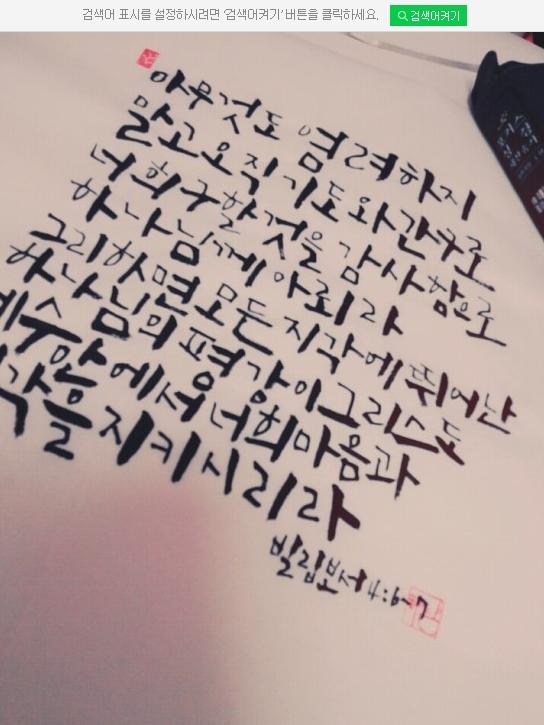 검색어 표시를 설정하시려면 '검색어켜기' 버튼을 클릭하세요. 검색어켜기
아무것도 염려하지
말고 오직 기도와 간구로
너희 구할 것을 감사함으로
하나님께 아뢰라
그리하면 모든 지각에 뛰어난
하나님의 평강이 그리스도
예수 안에서 너희 마음과
각을 지키시리라
빌립보서 4:6-7